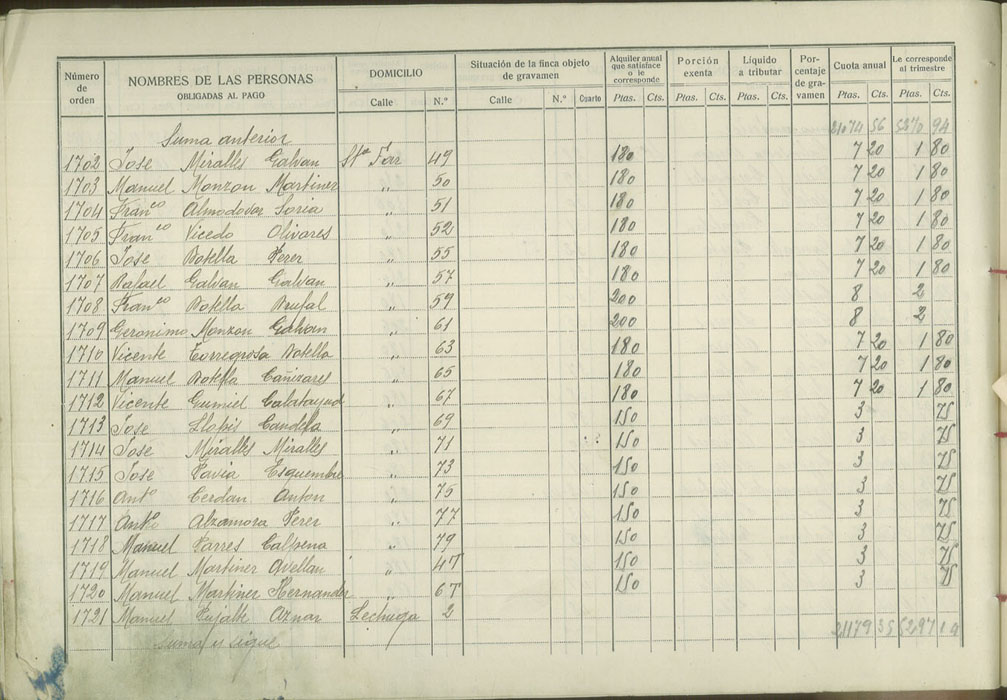 Número de orden | NOMBRES DE LAS PERSONAS OBLIGADAS AL PAGO | DOMICILIO | Situación de la finca objeto de gravamen | Alquiler anual que satisface o le corresponde | Porción exenta | Líquido a tributar | Porcentaje de gravamen | Cuota anual | Le corresponde al trimestre
Calle | N.º | Calle | N.º | Cuarto | Ptas. | Cts. | Ptas. | Cts. | Ptas. | Cts. | Ptas. | Cts. | Ptas. | Cts.
Suma anterior 21074 56 94
1702 Jose Miralles Galvan Sta Faz 49 180 7 20 1 80
1703 Manuel Monzon Martinez " 50 180 7 20 1 80
1704 Franco Almodovar Soria " 51 180 7 20 1 80
1705 Franco Vicedo Olivares " 52 180 7 20 1 80
1706 Jose Botella Perez " 55 180 7 20 1 80
1707 Rafael Galvan Galvan " 57 180 7 20 1 80
1708 Franco Botella Brufal " 59 200 8 2
1709 Geronimo Monzon Galvan " 61 200 8 2
1710 Vicente Torregrosa Botella " 63 180 7 20 1 80
1711 Manuel Botella Cañizares " 65 180 7 20 1 80
1712 Vicente Gumiel Calatayud " 67 180 7 20 1 80
1713 Jose Llopis Candela " 69 150 3 75
1714 Jose Miralles Miralles " 71 150 3 75
1715 Jose Pavia Esquembre " 73 150 3 75
1716 Anto Cerdan Anton " 75 150 3 75
1717 Anto Alzamora Perez " 77 150 3 75
1718 Manuel Parres Calpena " 79 150 3 75
1719 Manuel Martinez Avellan " 47 150 3 75
1720 Manuel Martinez Hernandez " 67 150 3 75
1721 Manuel Pujalte Aznar Lechuga 2
Suma y sigue 21179 35 5297 19